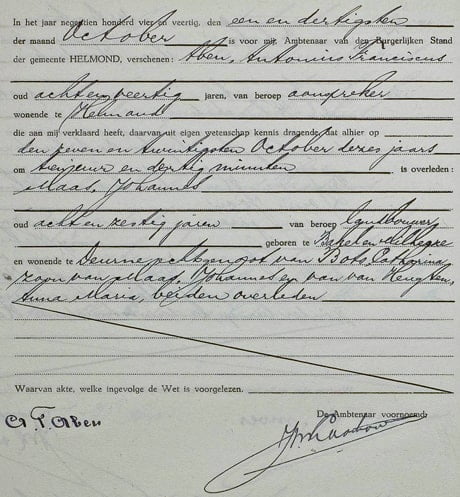 In het jaar negentien honderd vier en veertig, den een en dertigsten
der maand October is voor mij, Ambtenaar van den Burgerlijken Stand
der gemeente HELMOND, verschenen: Aben, Antonius Franciscus
oud acht en veertig jaren, van beroep aanspreker
wonende te Helmond
die aan mij verklaard heeft, daarvan uit eigen wetenschap kennis dragende, dat alhier op
den zeven en twintigsten October dezes jaars
om tien uur en dertig minuten is overleden:
Maas, Johannes
oud acht en zestig jaren van beroep landbouwer
geboren te Bakel en Milheeze
en wonende te Deurne echtgenoot van Bots, Catharina,
zoon van Maas, Johannes en van van Hengten,
Anna Maria, beiden overleden
Waarvan akte, welke ingevolge de Wet is voorgelezen.
De Ambtenaar voornoemd:
A.F. Aben